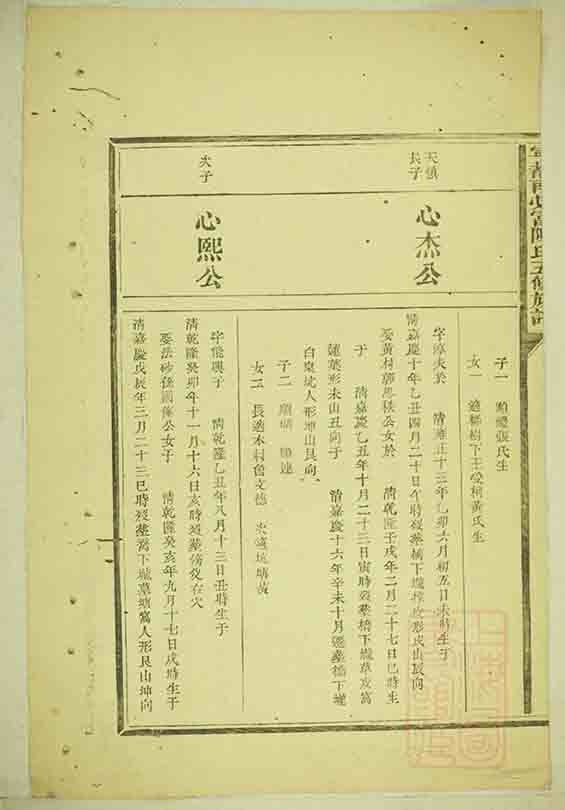 陳氏五修族
天慎
長子
心杰公
次子
心熙公
子一
張氏生
女一
適
樹下王
黃氏生
字淳夫於
清雍正十三年乙卯六月初五日未時生于
清嘉慶十年乙丑四月二十日午時歿葬橋下壠
形戌山辰向
娶黃村郭思
公女於
清乾隆壬戌年二月二十七日巳時生
于
清嘉慶乙丑年十月二十三日寅時歿葬橋下壠草皮窩
蓮葉形未山丑向于
清嘉慶十六年辛未十月
葬橋下壠
白
坑人形坤山艮向
子二
女二
長適木村
文德
次適坑塘
字
興于
清乾隆乙丑年八月十三日丑時生于
清乾隆癸卯年十一月十六日亥時
葬
娶法沙孫國
公女于
清乾隆癸亥年九月十七日戌時生于
清嘉慶戊辰年三月二十三巳時歿葬窩下壠墓塘窩人形艮山坤向